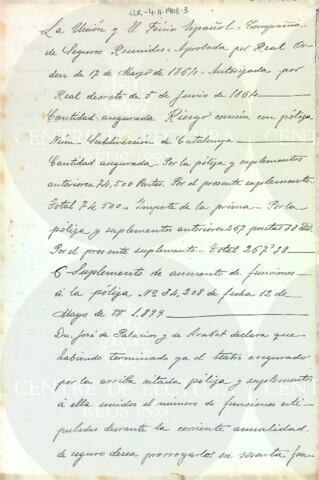 CLR-4-A-1908-3
La Unión y El Fénix Español - Compañía
de Seguros Reunidos - Aprobada por Real Or-
den de 17 de Marzo de 1864 - Autorizada por
Real decreto de 5 de Junio de 1864
Cantidad asegurada Riesgo común con póliza
Núm - Subdirección de Catalunya
Cantidad asegurada - Por la póliza y suplementos
anteriores 74,500 Pesetas. Por el presente suplemento -
Total 74,500 - Importe de la prima - Por la
póliza y suplementos anteriores 267 pesetas 38
Por el presente suplemento - Total 267'38
6 Suplemento de aumento de funciones
á la póliza Nº 34,208 de fecha 12 de
Mayo de 1899
Dn José de Palacios y de Arabot declara que
habiendo terminado ya el teatro asegurado
por la arriba citada póliza y suplementos
á ella unidos el número de funciones esti-
puladas durante la corriente anualidad
de seguro desea prorrogarlos en sesenta fun-
CENTRE DE LECTURA
REUS 1859